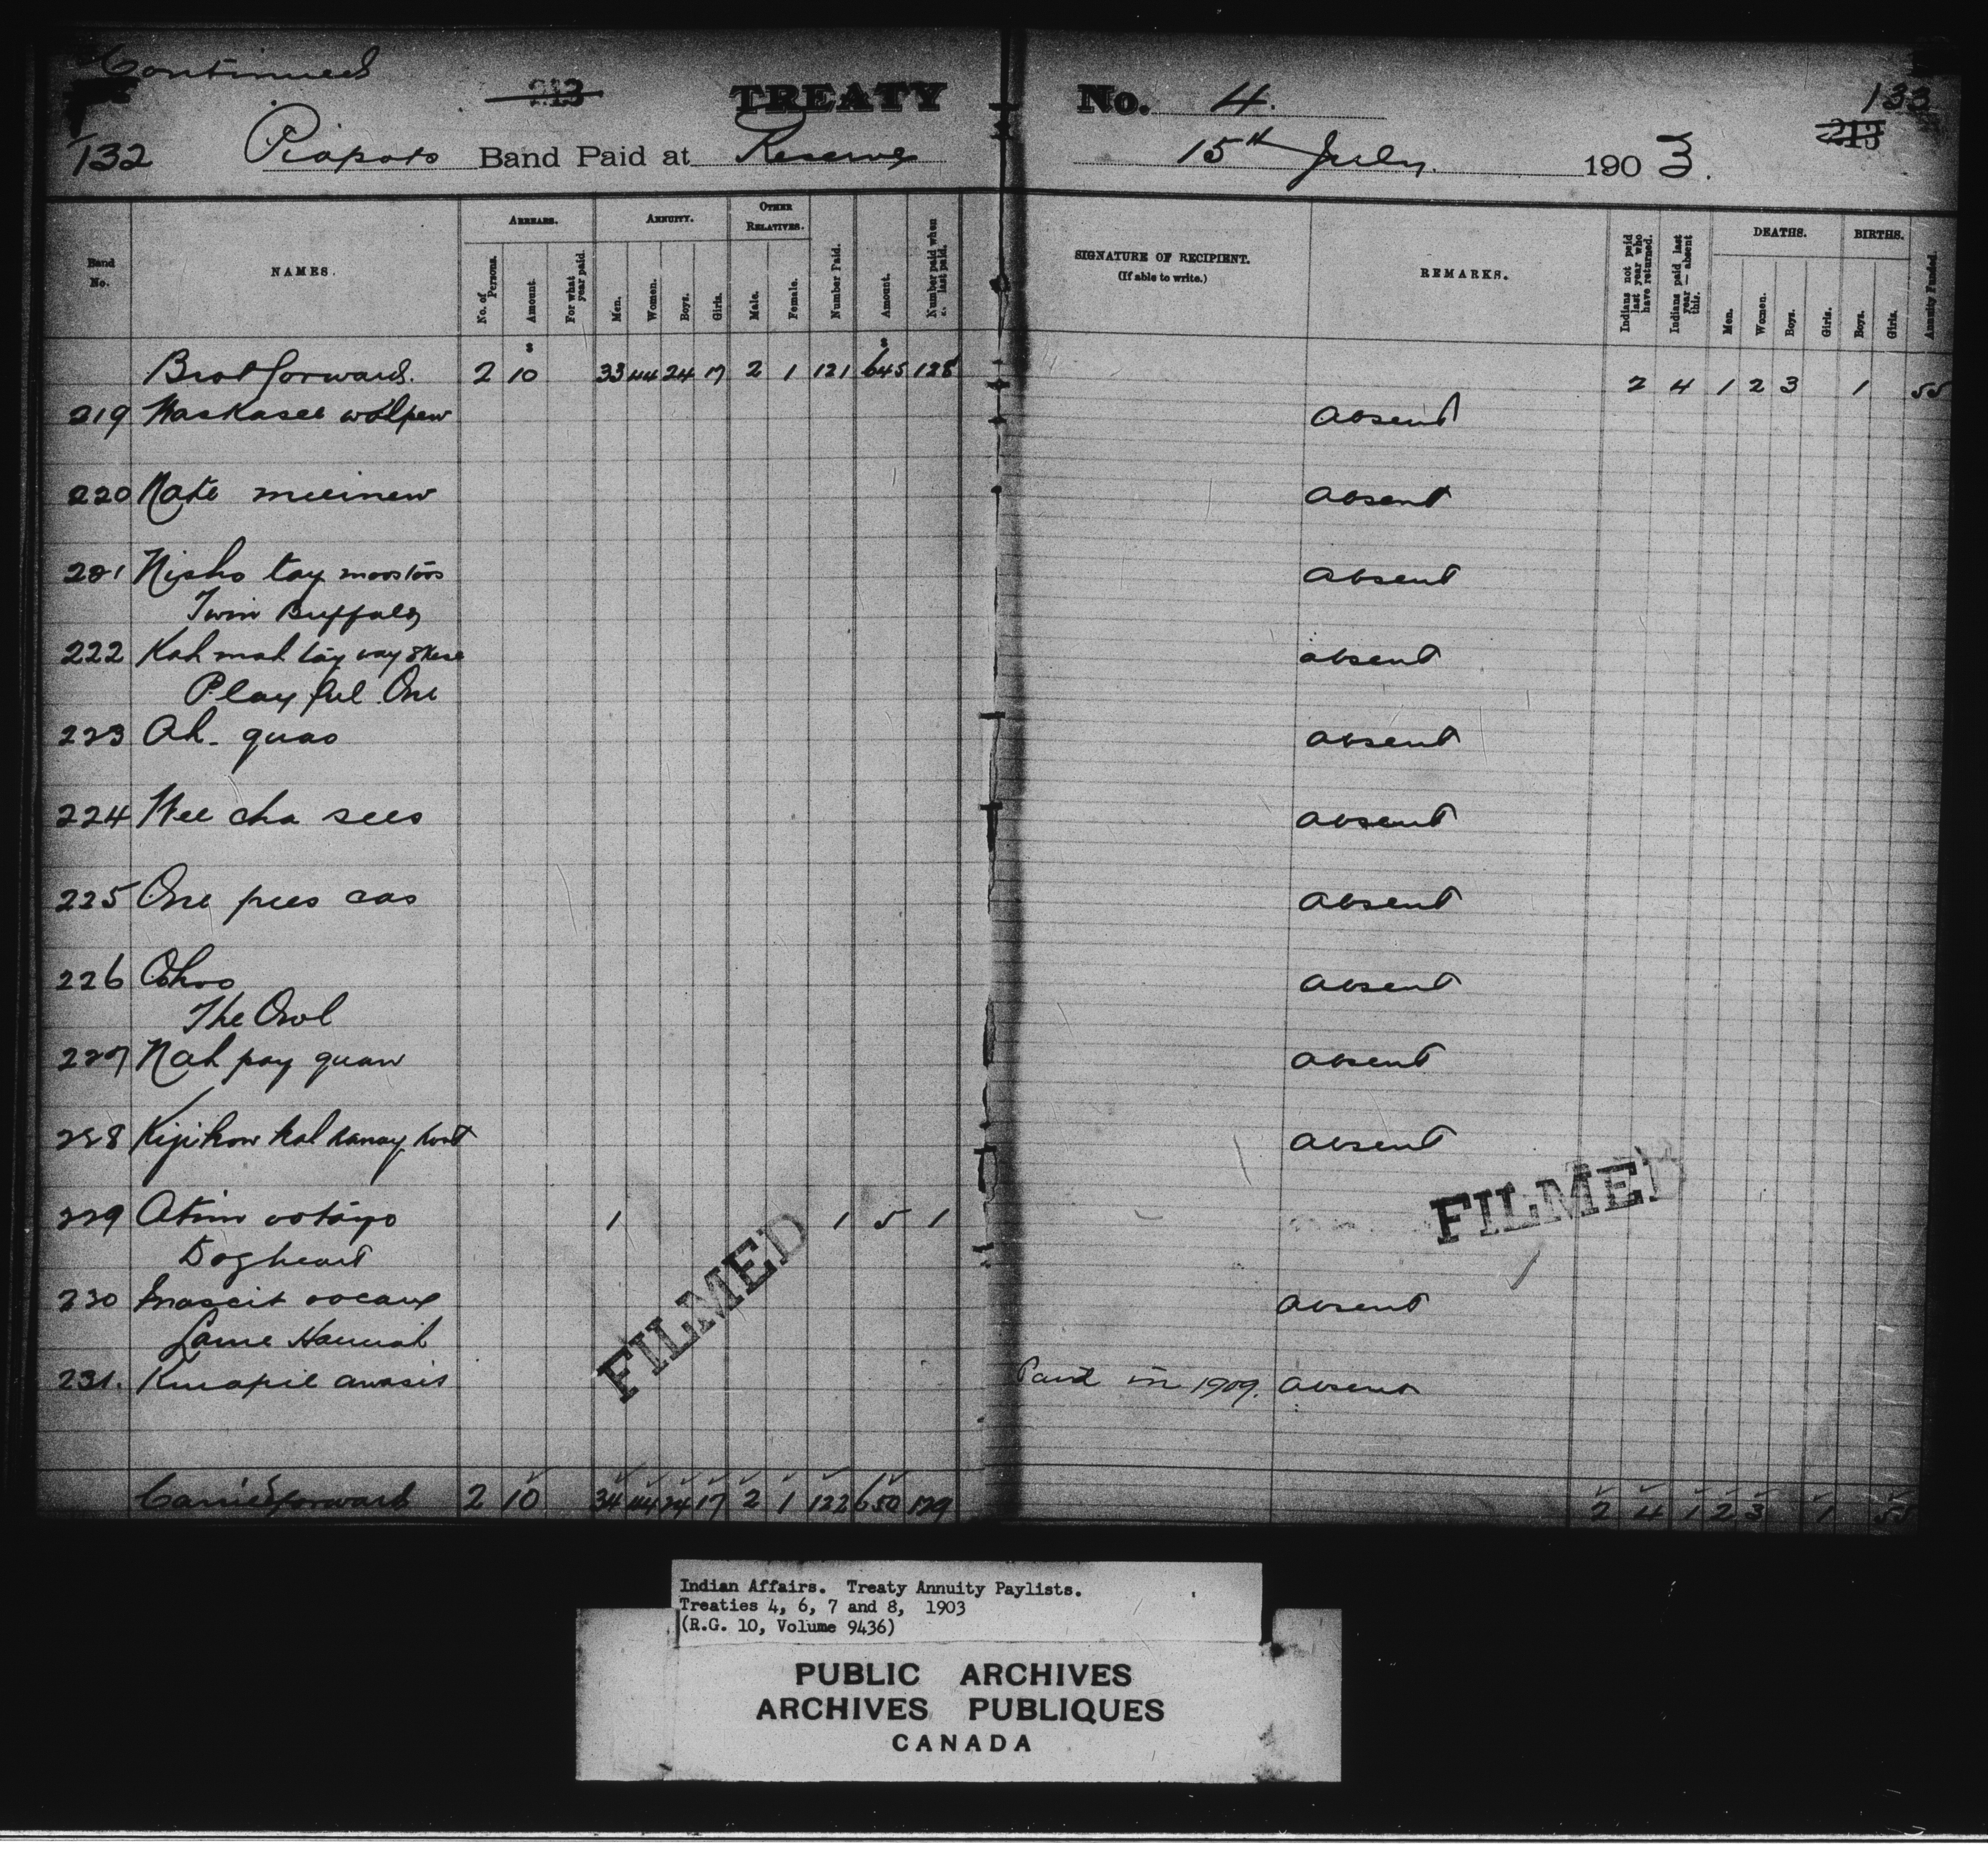 Continued
213 TREATY No. 4. 133
132 Piapots Band Paid at Reserve 15th July. 1903. 213
Band No. NAMES. ARREARS. ANNUITY. OTHER RELATIVES. Number Paid. Amount. Number paid when last paid. SIGNATURE OF RECIPIENT. (If able to write.) REMARKS. Indians not paid last year who have returned. Indians paid last year — absent this. DEATHS. BIRTHS. Annuity Funded.
No. of Persons. Amount. For what year paid. Men. Women. Boys. Girls. Male. Female. Men. Women. Boys. Girls. Boys. Girls.
$ $
Brot forward. 2 10 33 44 24 17 2 1 121 645 128 2 4 1 2 3 1 55
219 absent
220 Kate absent
221 Nisho tay moostoos absent
Twin Buffalo
222 Kah mah tay way absent
Playful One
223 Ah-quas absent
224 Wee cha sees absent
225 One pees cas absent
226 Ohoo absent
The Owl
227 Nah pay quaw absent
228 absent
229 Atim ootayo 1 1 5 1
Dogheart
230 absent
Lame Hannah
231. awasis Paid in 1909. absent
Carried forward 2 10 34 44 24 17 2 1 122 650 129 2 4 1 2 3 1 55
FILMED
FILMED
Indian Affairs. Treaty Annuity Paylists.
Treaties 4, 6, 7 and 8, 1903
(R.G. 10, Volume 9436)
PUBLIC ARCHIVES
ARCHIVES PUBLIQUES
CANADA